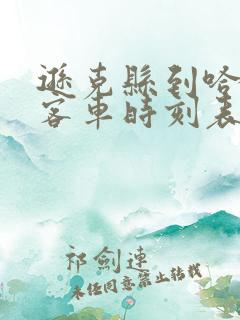 遜克縣到哈
客車時刻表
祁劍連
未經同意禁止轉載